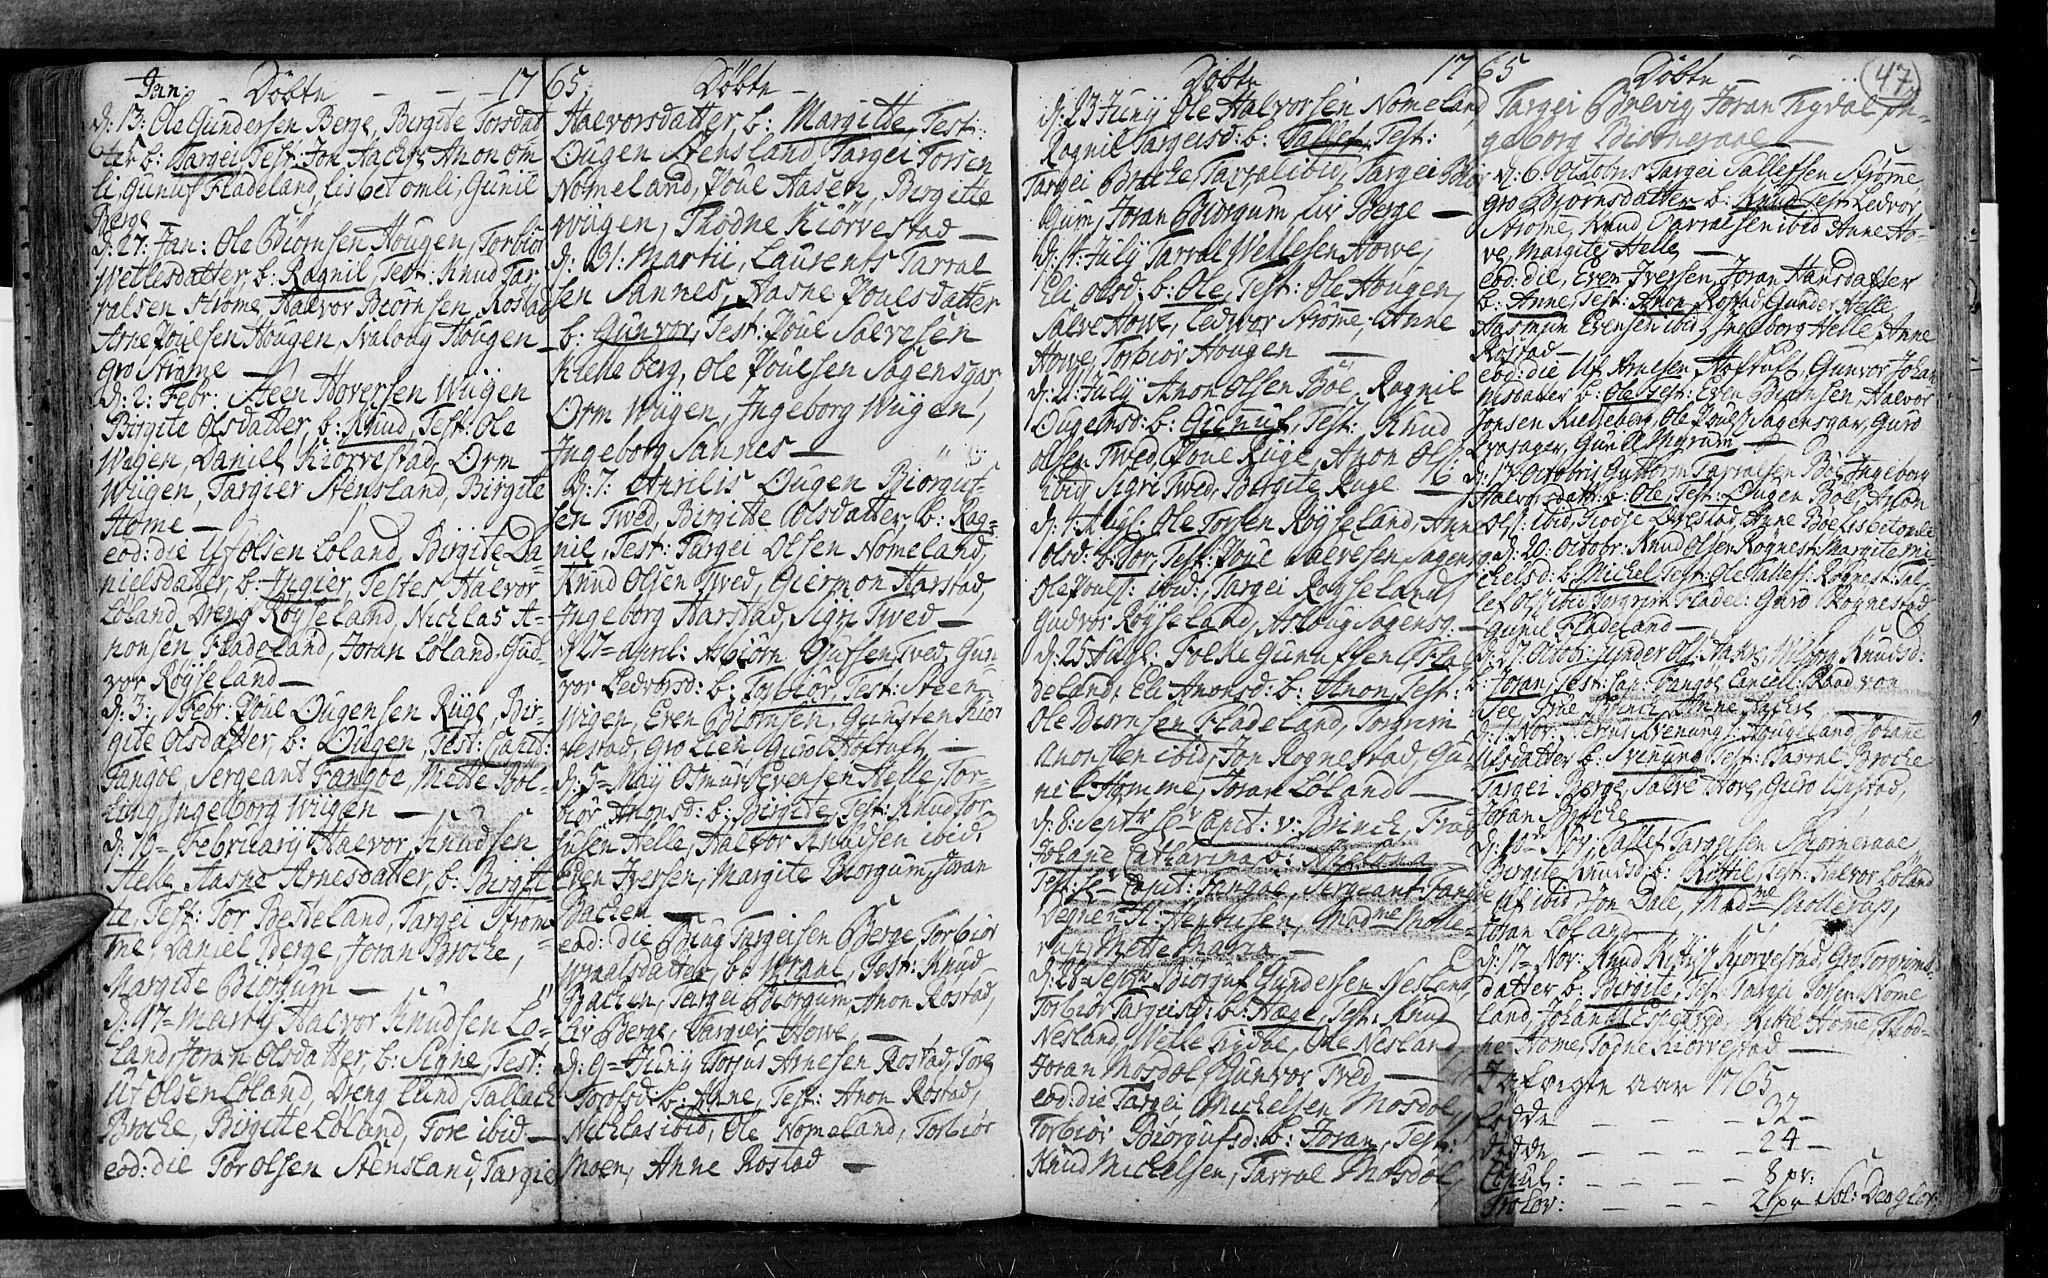 Jan: Döbte - - - 17
d: 13: Ole Gundersen Berge, Birgite Torsdat
ter b: Targei Test: Jon Aachre Anon om
li, Gunuf Fladeland, lisbet omli, Gunil
Berge
d: 27: Jan: Ole Biörnsen Hougen, Torbiör
Wetlesdatter, b: Ragnil, Test: Knud Tar
ralsen Strome, Halvor Biörnsen, Rostad
Arne Poulsen Hougen, Svaloug Hougen
Gro Strøme —
D: 2: Febr: Steen Hoversen Wiigen
Birgite Olsdatter, b: Knud, Test: Ole
Wiigen, Daniel Kiörvestad, Orm
Wiigen, Targier Stensland, Birgite
Home —
eod: die Uf Olsen Löland, Birgite Da
nielsdatter, b: Ingier, Testes Halvor
Löland, Dreng Röyseland, Nichlas A-
nonsen Fladeland, Joran Löland, Gud-
vor Röyseland —
d: 3: Febr: Poul Ougensen Rüge, Bir-
gite Olsdatter, b: Ougen, Test: Capit:
Fangöe, Sergeant Fangöe, Mette Böl-
ling, Ingeborg Wiigen —
d: 10= Februarij Halvor Knudsen
Helle Aasne Arnesdatter, b: Birgit-
te, Test: Tor Besteland, Targei Strom-
me Daniel Berge, Joran Broche,
Margite Biorgum —
d: 17= Martij Halvor Knudsen Lö-
land, Joran Olsdatter, b: Signe, Test:
Uf Olsen Löland, Dreng Lund, Tallach
Broche, Birgitte Löland, Tore ibid —
eod: die Tor Olsen Stensland, Targie
65. Döbte —
Halvorsdatter, b: Margitte, Test:
Ougen Stensland Targei Torsen
Nomeland, Poul Aasen, Birgitte
Wiigen, Thodne Kiörvestad —
d: 31: Martii, Laurents Tarral
sen Sannes, Aasne Poulsdatter
b: Gunvor, Test: Poul Salvesen
Kielleberg, Ole Poulsen Sagensgar,
Orm Wiigen, Ingeborg Wiigen,
Ingeborg Sannes —
D: 7: Aprilis Ougen Biorguf-
sen Tved, Birgitte Olsdatter, b: Rag-
nil, Test: Targei Olsen Nomeland,
Knud Olsen Tved, Giermon Harstad,
Ingeborg Harstad, Sigri Tved —
d 27= april: Asbiörn Ousen Tved, Gun
vor Ledvorsd: b: Torbior, Test: Steen
Wigen, Even Biörnsen, Gunsten Kiör
vestad, Gro Lien, Guro Holtuft —
d: 5= Maij Osmun Evensen Helle, Tor-
biör Anonsd: b: Birgite, Test: Knud Tor
kilsen Helle, Halvor Knudsen ibid:
Even Iversen, Margite Biorgum, Joran
Bachen —
eod: die Biug Targeisen Berge, Torbiör
Wraalsdatter, b: Wraal, Test: Knud
Bachen, Targei Biorgum, Anon Rostad,
Liv Berge, Targier Howe —
d: 9= Junij Torjus Arnesen Rostad, Tore
Torolsd: b: Anne, Test: Anon Rostad,
Nichlas ibid, Ole Nomeland, Torbiör
Moen, Anne Rostad —
Döbte 17
d: 23 Junij Ole Halvorsen Nomeland,
Ragnil Targeisd: b: Tallef, Test:
Targei Broche, Tarral ibid, Targei Bior
gum, Joran Biorgum, Liv Berge —
d: 4 July Tarral Wetlesen Howe,
Eli Olsd: b: Ole, Test: Ole Hougen,
Salve Howe, Ledvor Strøme, Anne
Howe, Torbiör Hougen —
d: 21 July Anon Olsen Böe, Ragnil
Ougensd: b: Gunnuf, Test: Knud
Olsen Tved, Poul Rüge, Anon Ols:
ibid, Sigri Tved, Birgite Ruge —
d: 4 Augs: Ole Torsen Röyseland, Anne
Olsd: b: Tor, Test: Poul Salvesen Sagensg
Ole Pouls: ibid: Targei Royseland,
Gudvor Röyseland, Aslaug Sagensg: —
d: 25 Augs: Folke Gunufsen Fla-
deland, Eli Anonsd: b: Anon, Test:
Ole Biornsen Fladeland, Torgrim
Anonsen ibid, Jon Rognestad, Gu-
nil Homme, Joran Löland —
d: 8: Septr Sr Capit: v: Brinch, Frue
Johane Catharina b:
Test: Sr Capit: Fangoe, Sergeant Fangoe
Madme Molle-
rup, Mette Maria —
d: 28 Septr Biorguf Gundersen Nesland,
Torbiör Targeisd: b: Hæge, Test: Knud
Nesland, Wetle Trydal, Ole Nesland
Joran Mosdøl, Gunvor Tved —
eod: die Targei Michelsen Mosdøl,
Torbiör Biorgufsd: b: Joran, Test:
Knud Michelsen, Tarral Mosdøl,
65 Döbte — 47
Targei Brelvig, Joran Trydal, In-
geborg Biörneraae —
d: 6: Octobris Targei Tallefsen Strøme,
Gro Bjørnsdatter b: Knud, Test: Ledvor
Strøme, Knud Tarralsen ibid Anne Ho-
ve, Margite Helle —
eod: die, Even Iversen, Joran Hansdatter
b: Anne, Test: Anon Rostad, Gunder Helle
Aasmun Evensen ibid, Ingeborg Helle, Anne
Rostad —
eod: die Uf Arnesen Holtuft, Gunvor Johan
nisdatter b: Ole, Test: Even Biörnsen, Halvor
Jonsen Kielleberg, Ole Pouls: Sagensgar, Guro
Myrum —
d: 13 Octobris Guttorm Tarralsen Böe, Ingeborg
Halvorsdatt: b: Ole, Test: Ougen Böe, Anon
Ols: ibid, Anne Böe, Lisbet omli
d: 20: Octobr: Knud Olsen Rognest: Margite Mi-
chelsd: b: Michel, Test: Ole Tallefs: Rognest: Tal-
lef Ols: ibid Torgrim Fladel: Guro Rognestad
Gunil Fladeland —
d: 27: Octobr: Gunder Ols: Knudsd:
b: Joran, Test: Cap: Fangoe, Cancell: Raad von
Frue Brinch, Anne
d: 1 Nov: Svenungs: Hougeland, Johane
Ufsdatter b: Svinung, Test: Tarral Broche
Targei Berge, Salve Hove, Guro Upstad,
Joran Broche
d: 10de Nov: Tallef Targeisen Biorneraae
Birgite Knudsd: b: Kittil, Test: Halvor Löland
Uf ibid, Jon Dale, Madme Mollerup,
Joran Löland —
d: 17= Nov: Knud Kittils: Kjörvestad, Gro Torgrims
datter b: Birgite, Test: Targei Torsen Nome
land, Johan Espetved, Kittil Homme, Thod-
ne Home, Togne Kiörvestad —
afvigte aar 1765
fødde — — — 32 —
døde — — — 24 —
Copul: — — — 8 pr:
Trolov: — — — 2 pr Sol: Deo glor: